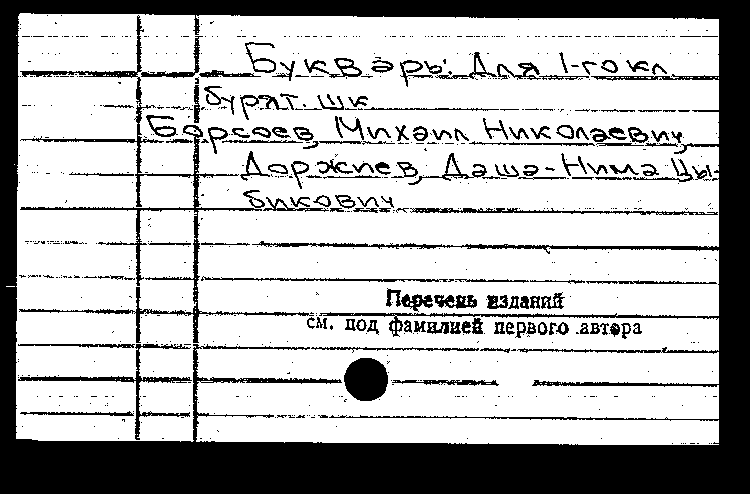 Букварь: Для 1-го кл.
бурят. шк
Борсоев, Михаил Николаевич,
Доржиев, Даша-Нима Цы-
бикович
Перечень изданий
см. под фамилией первого автора